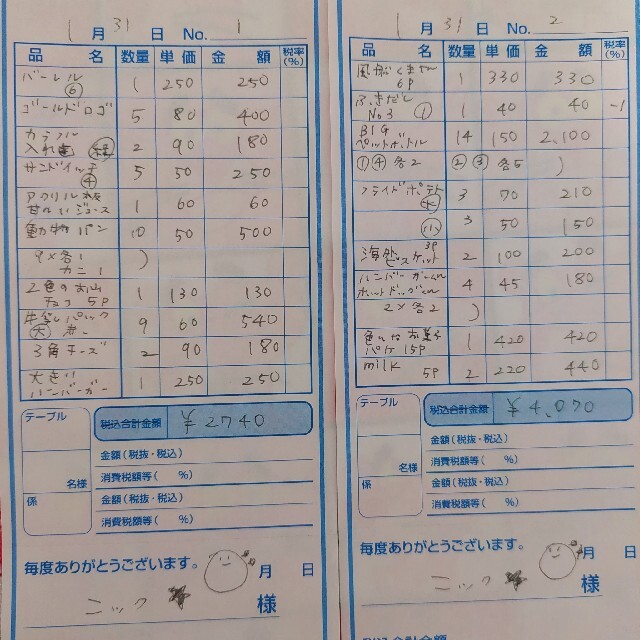 1月31日 No. 1
品名 数量 単価 金額 税率(%)
バーレル ⑥ 1 250 250
ゴールドロゴ 5 80 400
カラフル 入れ 2 90 180
サンドイッチ ④ 5 50 250
アクリル板 甘~いジュース 1 60 60
動物パン 10 50 500
9×各1 )
カニ1
2色のお山 チョコ 5P 1 130 130
牛乳パック 大 赤 9 60 540
3角チーズ 2 90 180
大きい ハンバーガー 1 250 250
テーブル 税込合計金額 ¥2740
金額(税抜・税込)
名様 消費税額等( %)
係 金額(税抜・税込)
消費税額等( %)
毎度ありがとうございます。 月 日
ニック 様
1月31日 No. 2
品名 数量 単価 金額 税率(%)
風船くまさん 6P 1 330 330
ふきだし No3 ① 1 40 40 -1
BIG ペットボトル 14 150 2,100
①④各2 ②③各5 )
フライドポテト 大 3 70 210
小 3 50 150
海外 ビスケット 3P 2 100 200
ハンバーガーくん ホットドッグくん 4 45 180
2×各2 )
色々なお菓子 パケ 15P 1 420 420
milk 5P 2 220 440
テーブル 税込合計金額 ¥4,070
金額(税抜・税込)
名様 消費税額等( %)
係 金額(税抜・税込)
消費税額等( %)
毎度ありがとうございます。 月 日
ニック 様
税込合計金額